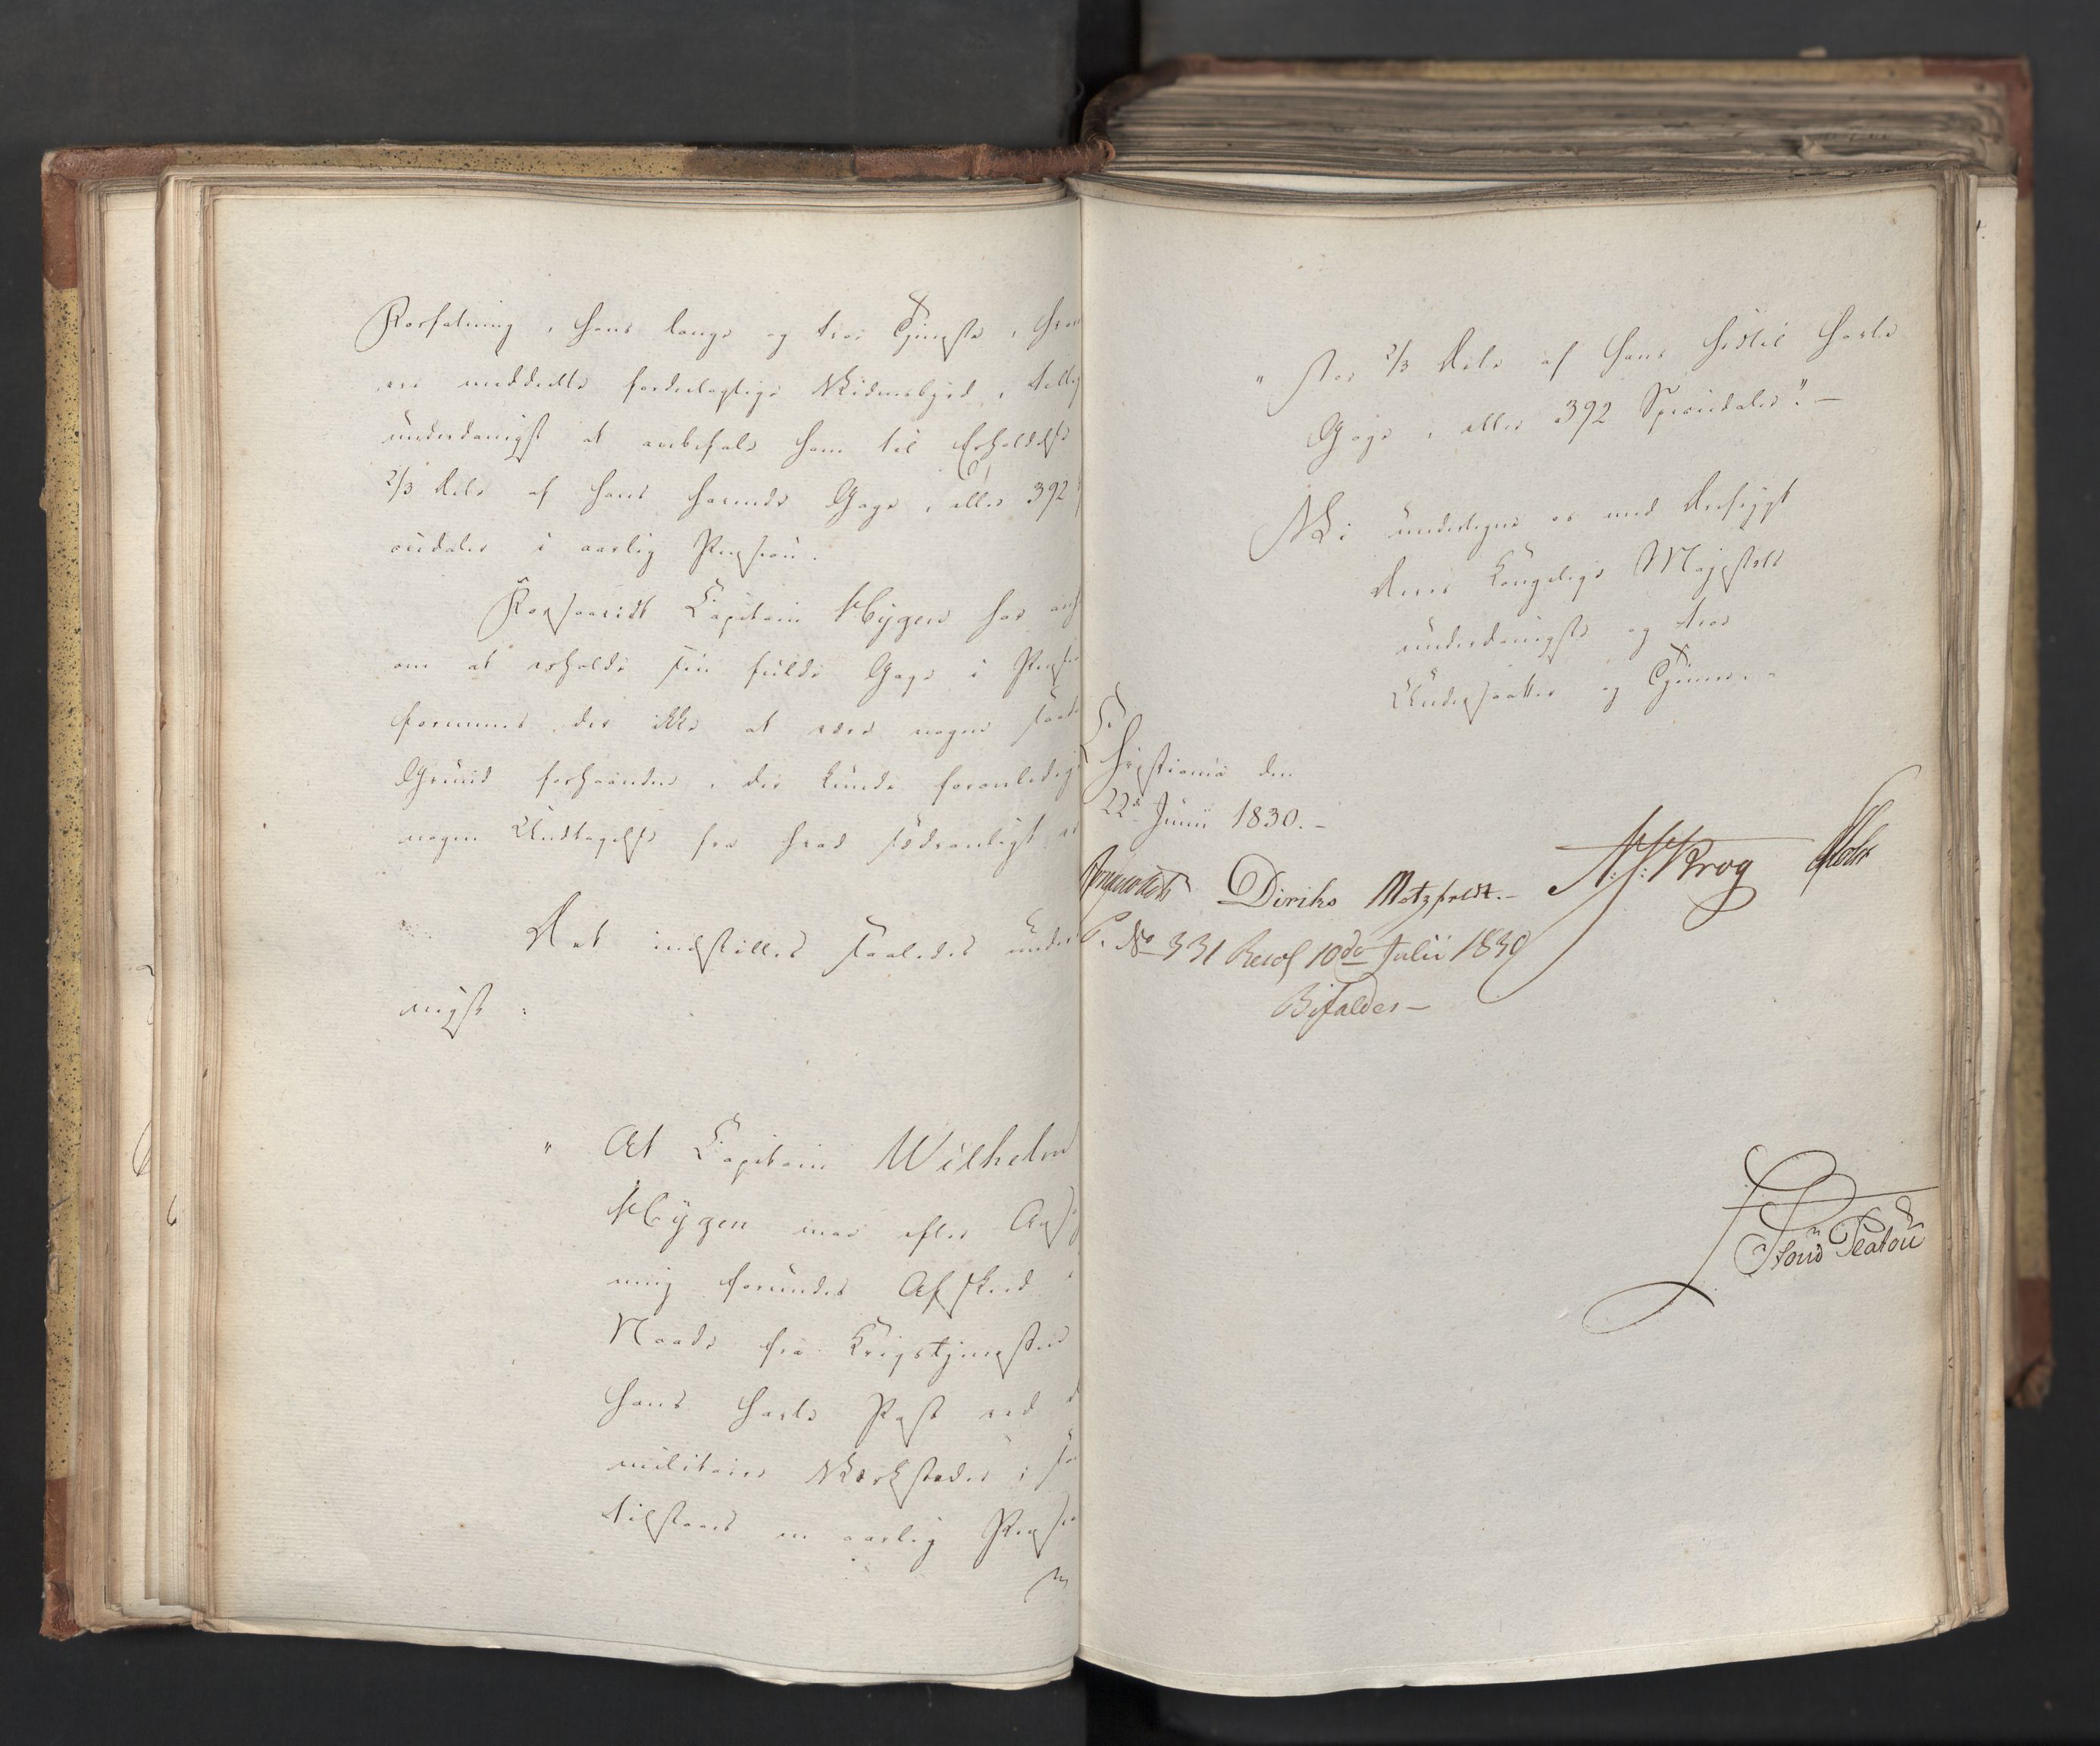 Forfatning, hans lange og troe Tjeneste, hvor
ere meddelte fordeelagtige Vidnesbyrd, tillige
underdanigst at anbefale ham til Erholdelse
2/3 Dele af hans havende Gage, eller 392
ciedaler i aarlig Pension.
Forsaavidt Capitain Hÿgen har
om at erholde sin fulde Gage i Pension
formenes der ikke at være nogen
Grund forhaanden, der kunde foranledige
nogen Undtagelse fra hvad sædvanligt er
Det indstilles saaledes under
nigst:
" At Capitain Wilhelm
Hÿgen maa efter Ansøg
ning forundes Afsked i
Naade fra Krigstjenesten
hans havte Post ved d
militaire Værksteder; sa
tilstaaes en aarlig Pension
" stor 2/3 Dele af hans hidtil havte
Gage, eller 392 Speciedaler". —
Vi undertegne os med Devsigt
Deres Kongelige Majestæts
underdanigste og troe
Undersaatter og Tjenere.
Christiania den
22de Junii 1830. –
Diriks Motzfeldt. – Krog
P. No 331 Resol 10de Julii 1830
Bifaldes —